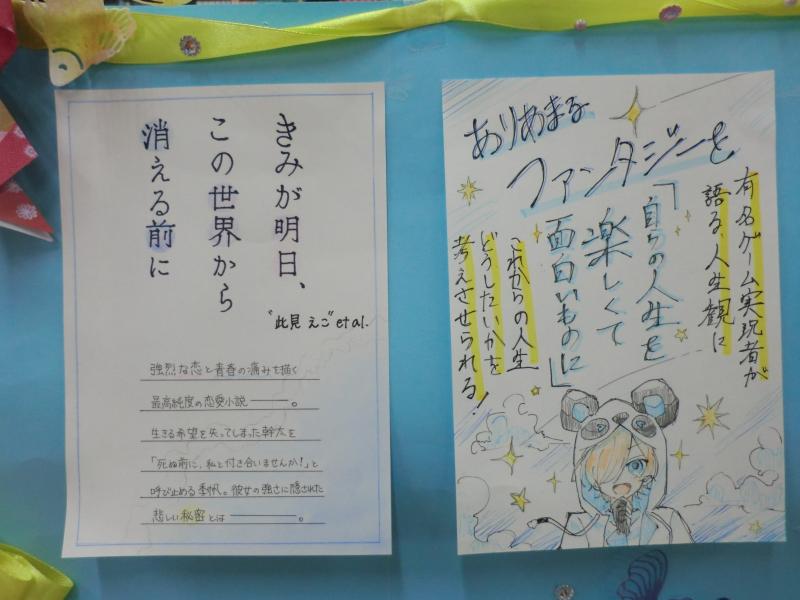 きみが明日、
この世界から
消える前に
"此見 えご" et al.
強烈な恋と青春の痛みを描く
最高純度の恋愛小説―――。
生きる希望を失ってしまった幹太を
「死ぬ前に、私と付き合いませんか!」と
呼び止める季帆。彼女の強さに隠された
悲しい秘密とは―――。
ありあまる
ファンタジーを
有名ゲーム実況者が
語る、人生観に
「自らの人生を
楽しくて
面白いものに」
これからの人生
どうしたいかを
考えさせられる!